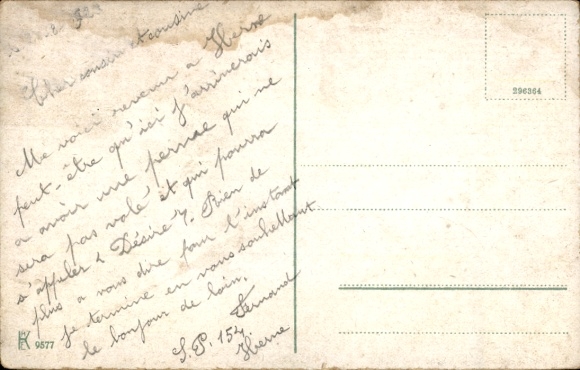 Cher cousin et cousine
Me voici revenu a Herve
peut-être qu'ici j'arriverais
a avoir une permae qui ne
sera pas volé et qui pourra
s'appeler « Désiré ». Rien de
plus a vous dire pour l'instant
je termine en vous souhaittant
le bonjour de loin.
Fernand
S.P. 154
Herve
296364
9577